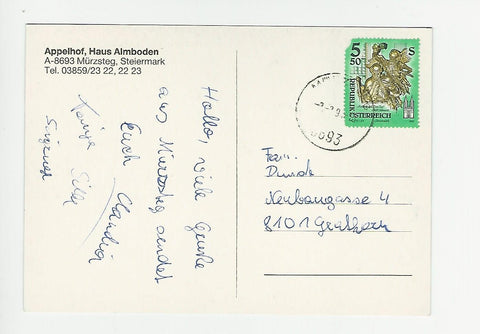 Appelhof, Haus Almboden
A-8693 Mürzsteg, Steiermark
Tel. 03859/23 22, 22 23
Hallo, viele Grüße
aus Mürzsteg sendet
Euch Claudia
Tanja Silly
5 S
50
REPUBLIK
ÖSTERREICH
8693
Fam.
Neubaugasse 4
8101 Gratkorn